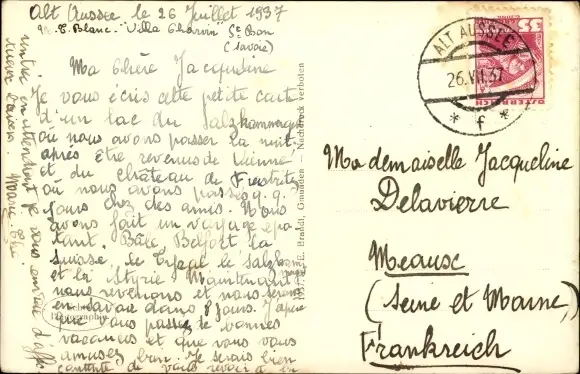 Alt Aussee le 26 Juillet 1937
Blanc "Villa Charvin" St Bon
(Savoie)
Ma chère Jacqueline
Je vous écris cette petite carte
d'un lac du Salzkammergut
où nous avons passer la nuit
après être revenus de Vienne
et du château de Feistritz
où nous avons passés q.q.
jours chez des amis. Nous
avons fait un voyage épa
tant. Bâle, Belfort la
Suisse le Tyrol le Salzkam
et la Styrie Maintenant
nous revenons et nous serons
en Savoie dans 8 jours. J'espère
que vous passez de bonnes
vacances et que vous vous
amusez bien. Je serais bien
contente de vous revoir et en
vous embrasse
Marie
1937. E. Brandt, Gmunden — Nachdruck verboten
Photographie
ALT AUSSEE
26.VII.37
* f *
35
ÖSTERREICH
Mademoiselle Jacqueline
Delavierre
Meaux
(Seine et Marne)
Frankreich